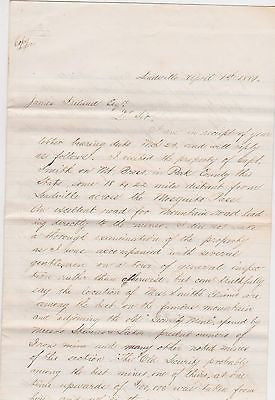 Leadville April 1st 1881.
James Esqr
Dr Sir
I am in receipt of your
letter bearing date Mch 23, and will reply
as follows. I visited the property of Capt.
Smith on Mt. Bross, in Park County this
State some 18 to 22 miles distant from
Leadville across the Mosquito Pass
an excellent road for Mountain road lead
ing directly to the mines. I did not make
a thorough examination of the property
as I was accompanied with several
gentlemen on a tour of general inspec
tion rather than otherwise but can truthfully
say the location of the Smith Claims are
among the best on the famous mountain
and adjoining the old "Security Mine" owned by
Messrs Stevens & Leiter owners of
Iron mine and many other notes mines
of this section The Old Security probably
among the best mines, out of this, at one
time upwards of was taken from
and not in the